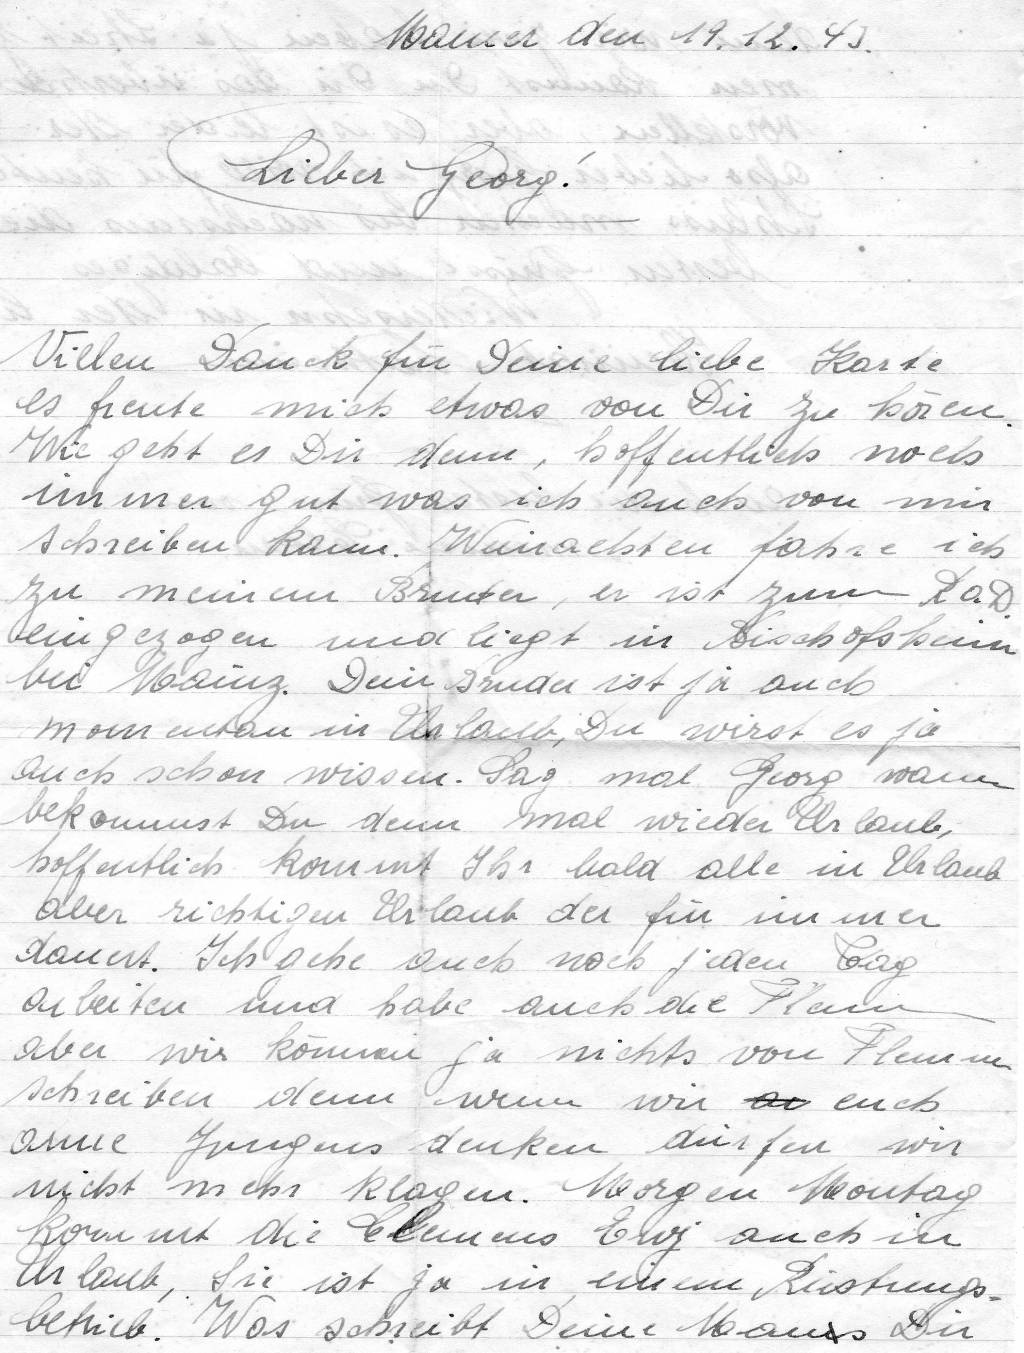 Mamer den 19.12.43.
Lieber Georg!
Villen Danck für Deine liebe Karte
es freute mich etwas von Dir zu hören.
Wie geht es Dir denn, hoffentlich noch
immer gut was ich auch von mir
schreiben kann. Weinachten fahre ich
zu meinem Bruder, er ist zum R.a.D.
eingezogen und liegt in Bischofsheim
bei Mainz. Dein Bruder ist ja auch
momentan in Urlaub, Du wirst es ja
auch schon wissen. Sag mal Georg wann
bekommst Du denn mal wieder Urlaub,
hoffentlich kommt Ihr bald alle in Urlaub
aber richtigen Urlaub der für immer
dauert. Ich gehe auch noch jeden Tag
arbeiten und habe auch die Flemm
aber wir können ja nichts von Flemm
schreiben denn wenn wir euch
arme Jungens denken dürfen wir
nicht mehr klagen. Morgen Montag
kommt die Clemens Erny auch in
Urlaub, Sie ist ja in einem Rüstungs-
betrieb. Was schreibt Deine Mama Dir